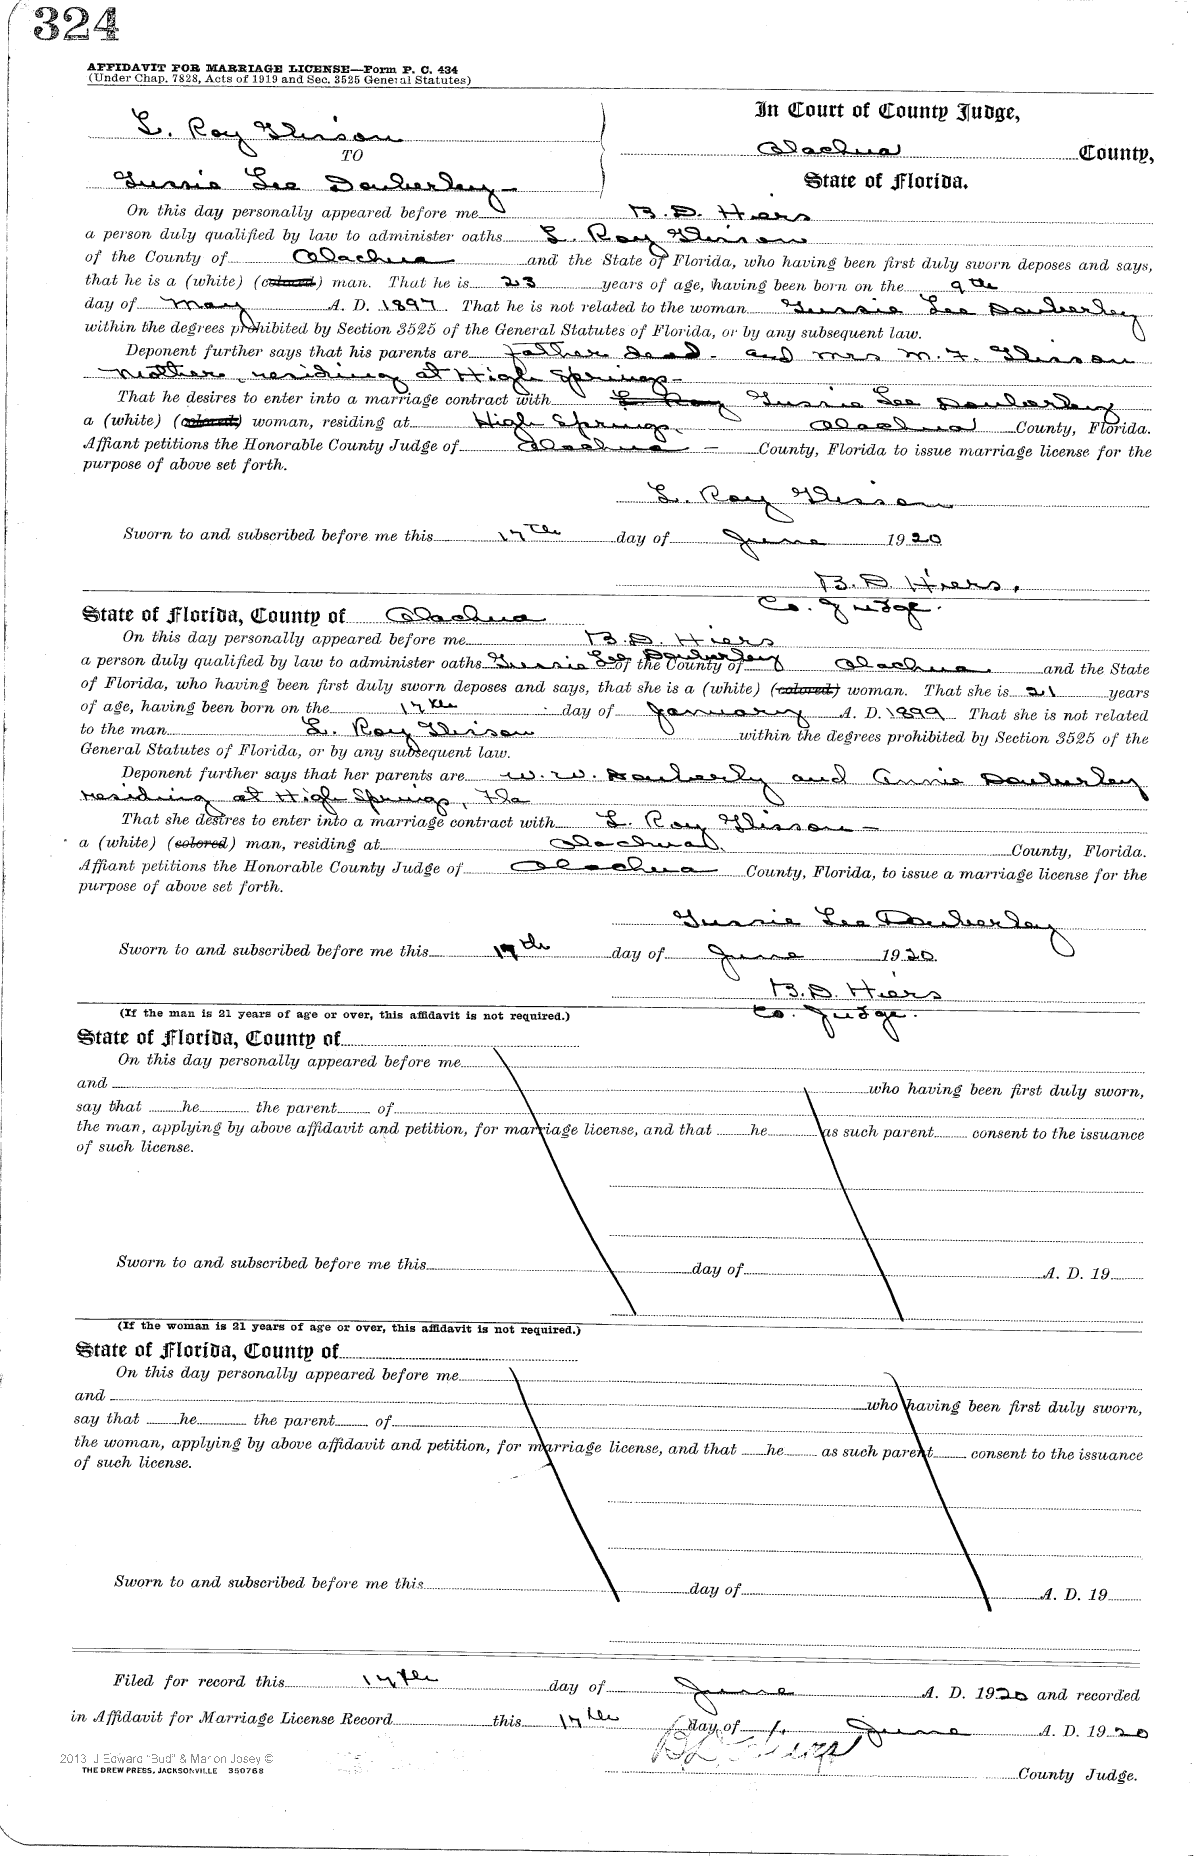 324
AFFIDAVIT FOR MARRIAGE LICENSE—Form P. C. 434
(Under Chap. 7828, Acts of 1919 and Sec. 3525 General Statutes)
L. Roy Glisson
TO
Gussie Lee Dauberley
In Court of County Judge,
Alachua County,
State of Florida.
On this day personally appeared before me B. D. Hiers
a person duly qualified by law to administer oaths L. Roy Glisson
of the County of Alachua and the State of Florida, who having been first duly sworn deposes and says,
that he is a (white) (colored) man. That he is 23 years of age, having been born on the 9th
day of May A. D. 1897 That he is not related to the woman Gussie Lee Dauberley
within the degrees prohibited by Section 3525 of the General Statutes of Florida, or by any subsequent law.
Deponent further says that his parents are father dead - and Mrs M. F. Glisson
mother, residing at High Springs
That he desires to enter into a marriage contract with L Roy Gussie Lee Dauberley
a (white) (colored) woman, residing at High Springs, Alachua County, Florida.
Affiant petitions the Honorable County Judge of Alachua — County, Florida to issue marriage license for the
purpose of above set forth.
L. Roy Glisson
Sworn to and subscribed before me this 17th day of June 1920
B. D. Hiers,
Co. Judge.
State of Florida, County of Alachua
On this day personally appeared before me B. D. Hiers
a person duly qualified by law to administer oaths Gussie Lee Dauberley of the County of Alachua and the State
of Florida, who having been first duly sworn deposes and says, that she is a (white) (colored) woman. That she is 21 years
of age, having been born on the 17th day of January A. D. 1899 That she is not related
to the man L. Roy Glisson within the degrees prohibited by Section 3525 of the
General Statutes of Florida, or by any subsequent law.
Deponent further says that her parents are W. W. Dauberly and Annie Dauberley
residing at High Springs, Fla
That she desires to enter into a marriage contract with L. Roy Glisson —
a (white) (colored) man, residing at Alachua. County, Florida.
Affiant petitions the Honorable County Judge of Alachua County, Florida, to issue a marriage license for the
purpose of above set forth.
Gussie Lee Dauberley
Sworn to and subscribed before me this 17th day of June 1920
B. D. Hiers
Co. Judge.
(If the man is 21 years of age or over, this affidavit is not required.)
State of Florida, County of
On this day personally appeared before me
and who having been first duly sworn,
say that he the parent of
the man, applying by above affidavit and petition, for marriage license, and that he as such parent consent to the issuance
of such license.
Sworn to and subscribed before me this day of A. D. 19
(If the woman is 21 years of age or over, this affidavit is not required.)
State of Florida, County of
On this day personally appeared before me
and who having been first duly sworn,
say that he the parent of
the woman, applying by above affidavit and petition, for marriage license, and that he as such parent consent to the issuance
of such license.
Sworn to and subscribed before me this day of A. D. 19
Filed for record this 17th day of June A. D. 1920 and recorded
in Affidavit for Marriage License Record this 17th day of June A. D. 1920
B D Hiers
County Judge.
2013 J Edward "Bud" & Marion Josey ©
THE DREW PRESS, JACKSONVILLE 350768